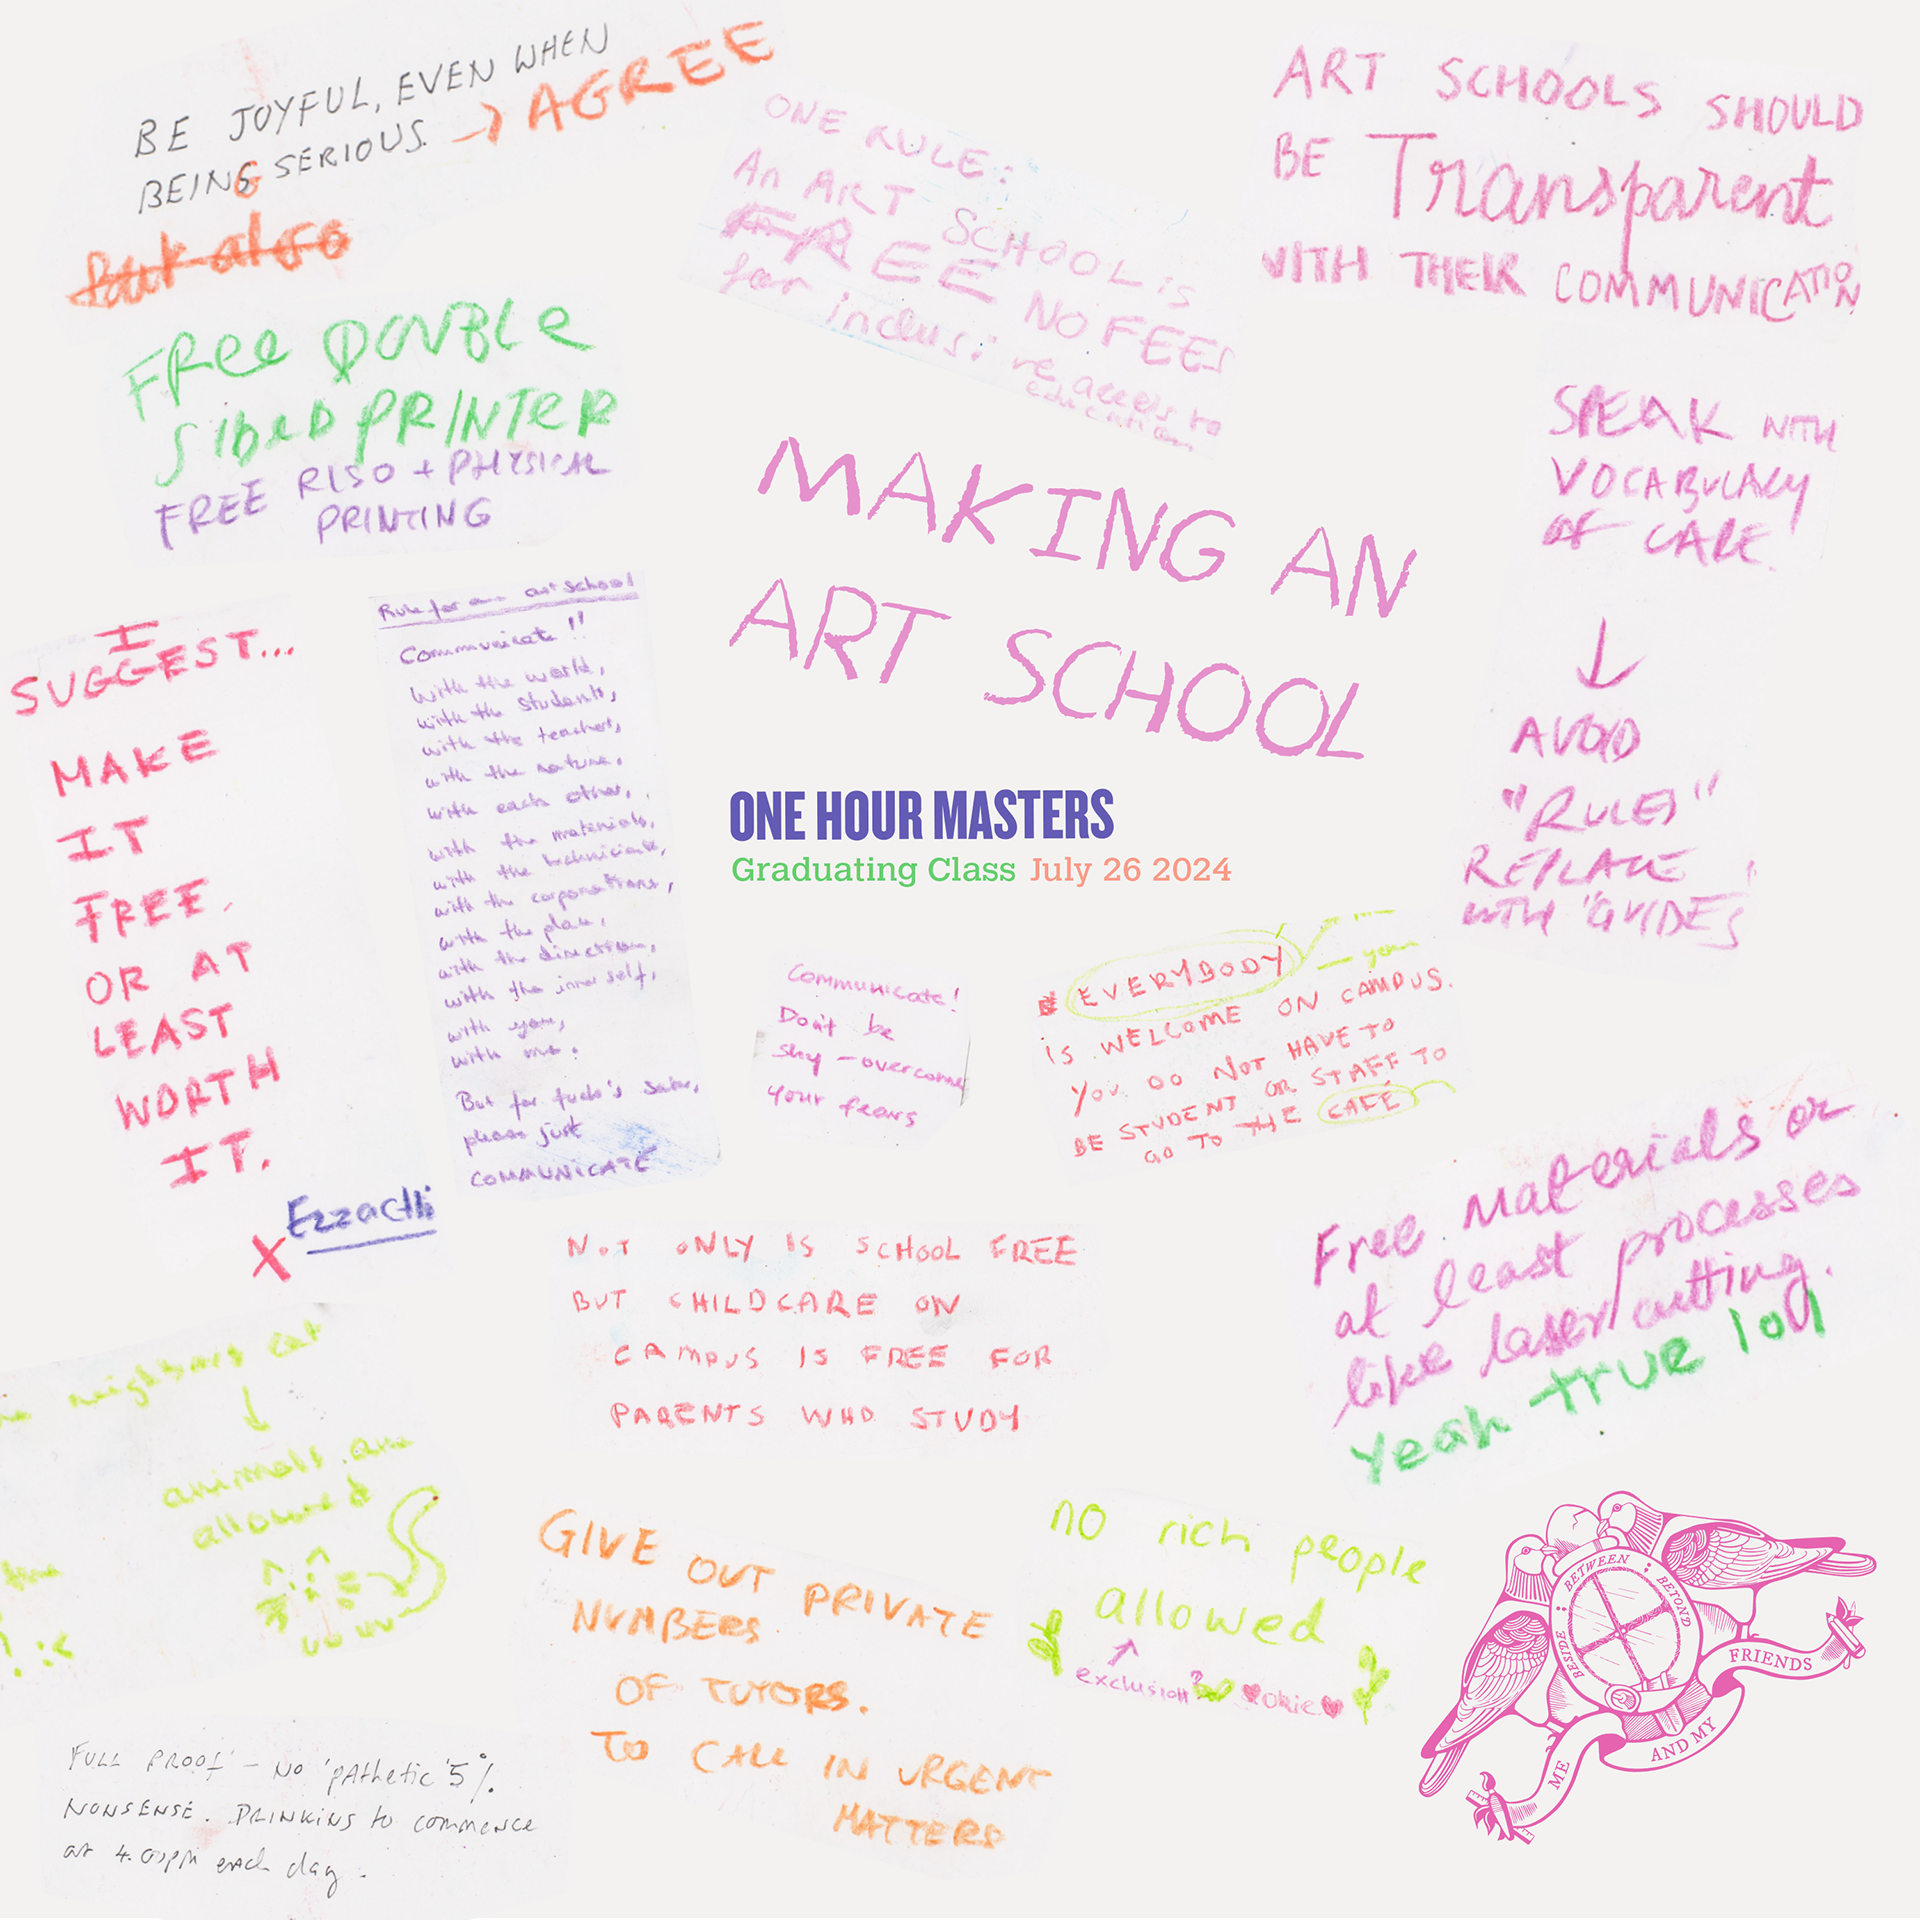 BE JOYFUL, EVEN WHEN
BEING SERIOUS. → AGREE
but also
FREE DOUBLE
SIDED PRINTER
FREE RISO + PHYSICAL
PRINTING
ONE RULE:
An ART SCHOOL is
FREE NO FEES
for inclusive access to
education
ART SCHOOLS SHOULD
BE Transparent
WITH THEIR COMMUNICATION
SPEAK WITH
VOCABULARY
OF CARE.
↓
AVOID
"RULES"
REPLACE
WITH "GUIDES"
MAKING AN
ART SCHOOL
ONE HOUR MASTERS
Graduating Class July 26 2024
I
SUGGEST...
MAKE
IT
FREE,
OR AT
LEAST
WORTH
IT.
X Ezzactli
Rule for an art school
Communicate!!
with the world,
with the students,
with the teachers,
with the nature,
with each other,
with the materials,
with the technicians,
with the corporations,
with the plan,
with the direction,
with the inner self,
with you,
with me.
But for fuck's sake,
please just
COMMUNICATE
Communicate!
Don't be
shy - overcome
your fears
EVERYBODY
IS WELCOME ON CAMPUS.
YOU DO NOT HAVE TO
BE STUDENT OR STAFF TO
GO TO THE CAFE
NOT ONLY IS SCHOOL FREE
BUT CHILDCARE ON
CAMPUS IS FREE FOR
PARENTS WHO STUDY
Free Materials or
at least processes
like laser/cutting.
Yeah true lol
animals are
allowed
GIVE OUT PRIVATE
NUMBERS
OF TUTORS.
TO CALL IN URGENT
MATTERS
no rich people
allowed
exclusion?
FULL PROOF - NO 'pAthetic' 5%
NONSENSE. DRINKING to commence
at 4.00pm each day.
BESIDE BETWEEN BEYOND
ME AND MY FRIENDS